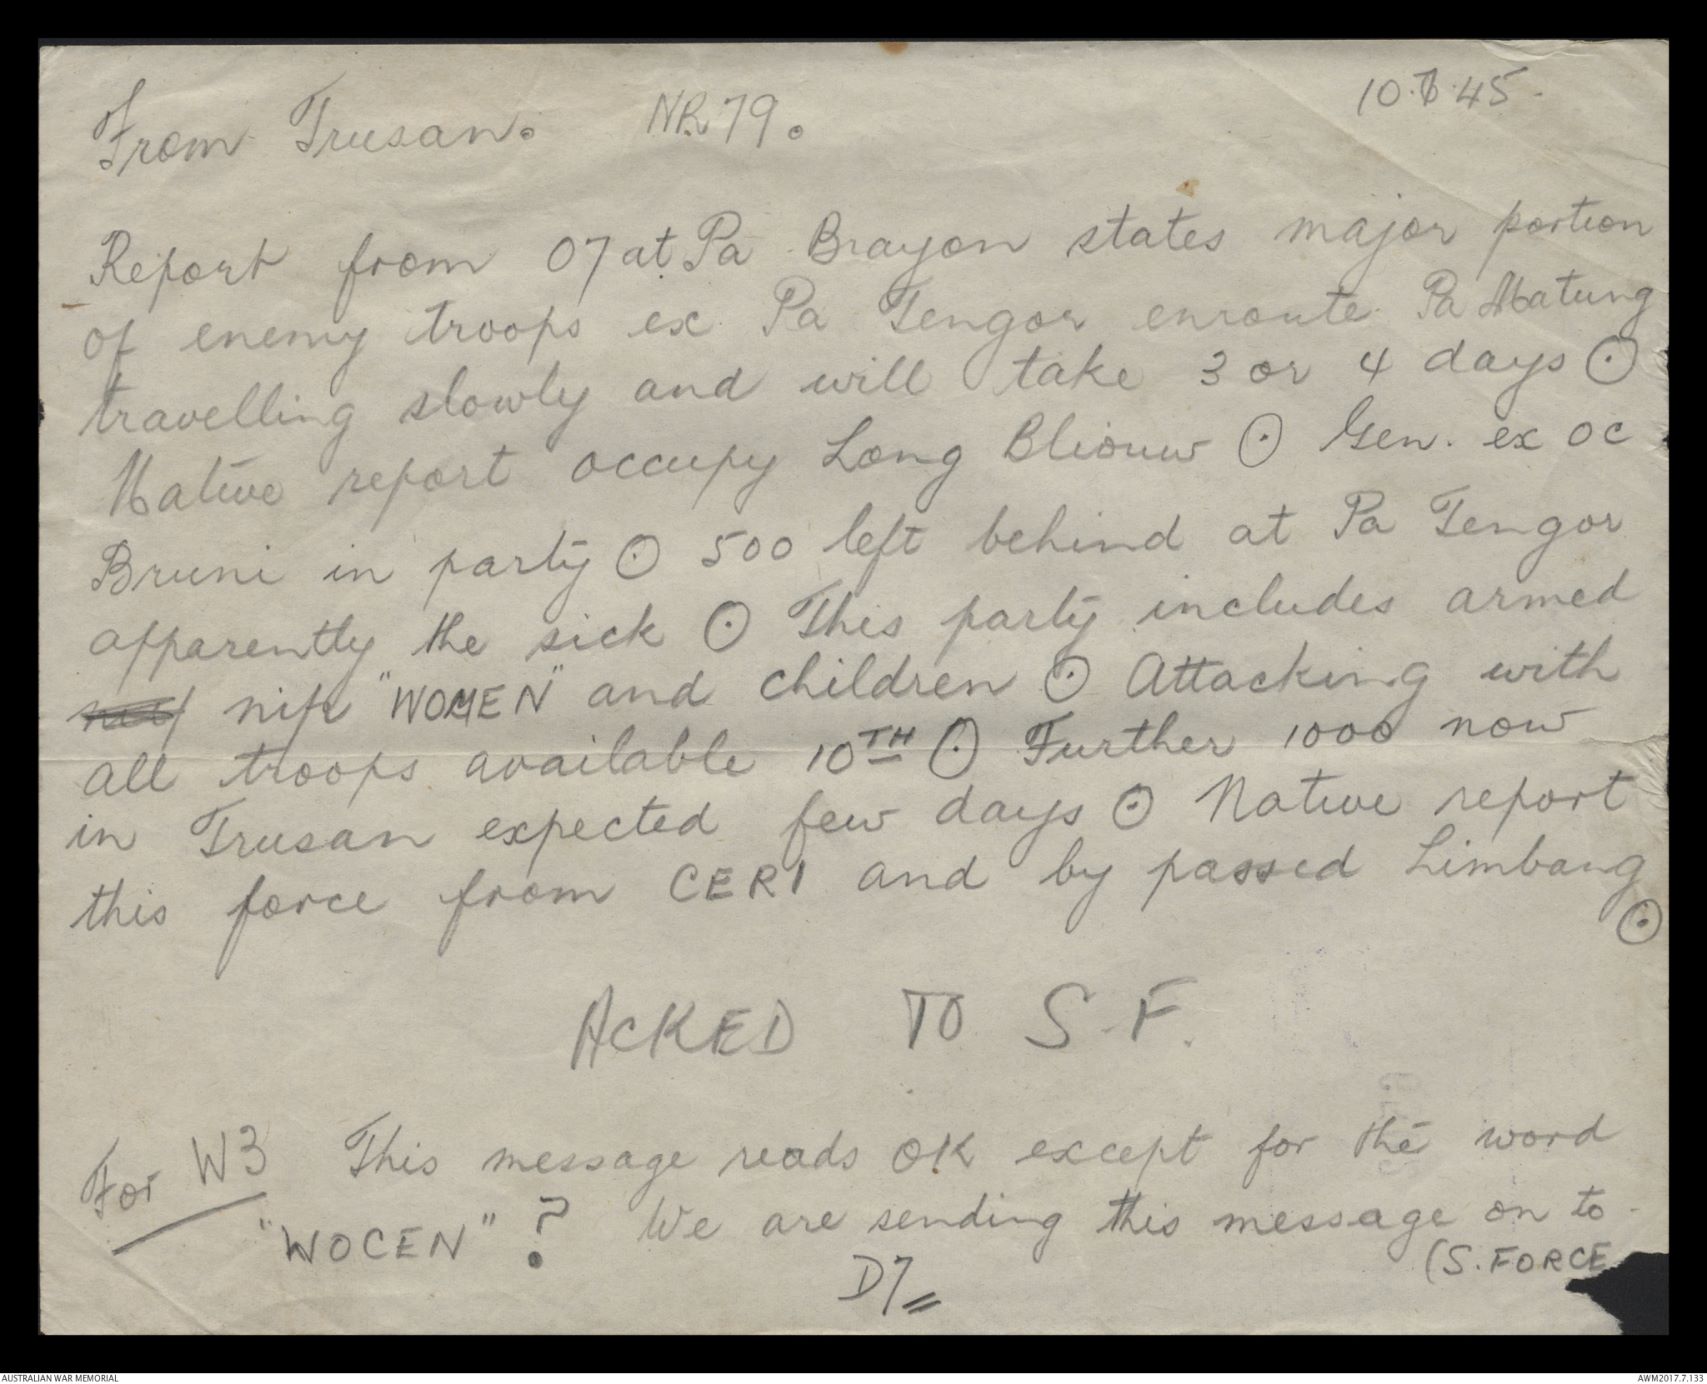 10.8.45.
From Trusan. NR 79.
Report from 07 at Pa Brayon states major portion
of enemy troops ex Pa Tengor enroute Pa Matung
travelling slowly and will take 3 or 4 days ⊙
Native report occupy Long Bliouw ⊙ Gen. ex OC
Bruni in party ⊙ 500 left behind at Pa Tengor
apparently the sick ⊙ This party includes armed
nip "WOMEN" and children ⊙ Attacking with
all troops available 10TH ⊙ Further 1000 now
in Trusan expected few days ⊙ Native report
this force from CERI and by passed Limbang
⊙
ACKED TO S.F.
For W3 This message reads OK except for the word
"WOCEN" ? We are sending this message on to
(S. FORCE
D7
AUSTRALIAN WAR MEMORIAL
AWM2017.7.133